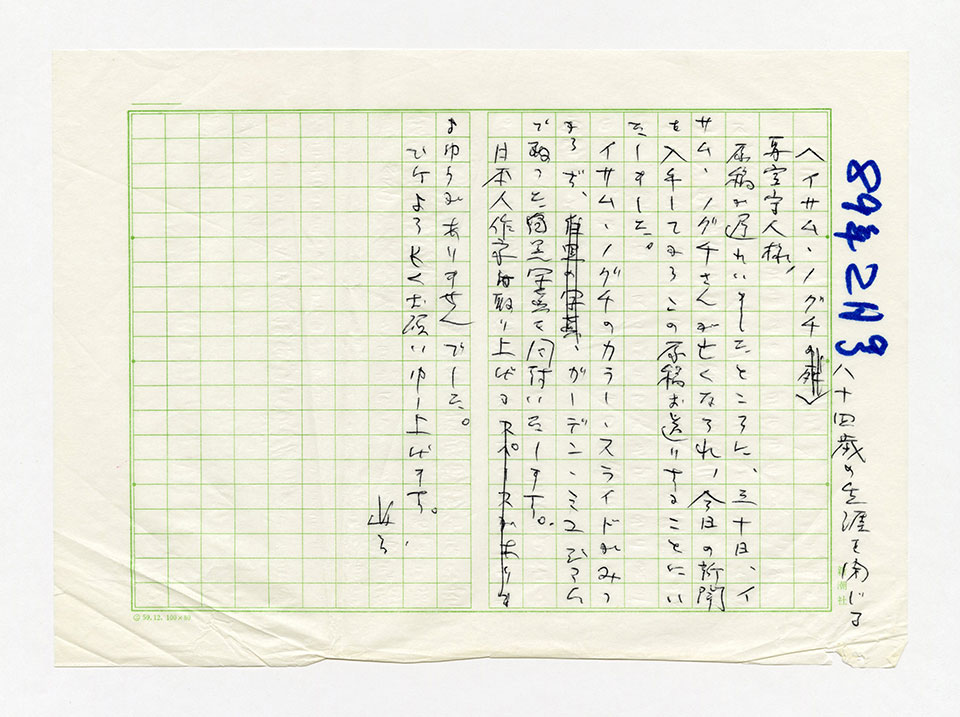 89年2月号
八十四歳の生涯を閉じる
へイサム・ノグチの死
様、
原稿が遅れいましたところに、三十日、イ
サム・ノグチさんが亡くなられ、今日の新聞
を入手してからこの原稿お送りすることにい
たしました。
イサム・ノグチのカラー・スライドがみつ
からず、ガーデン・ミュジアム
で撮った白黒写真を同封いたします。
日本人作家は取り上げるスペースがありま
よゆうがありませんでした。
よろしくお願い申し上げます。
潮社
59.12. 100×